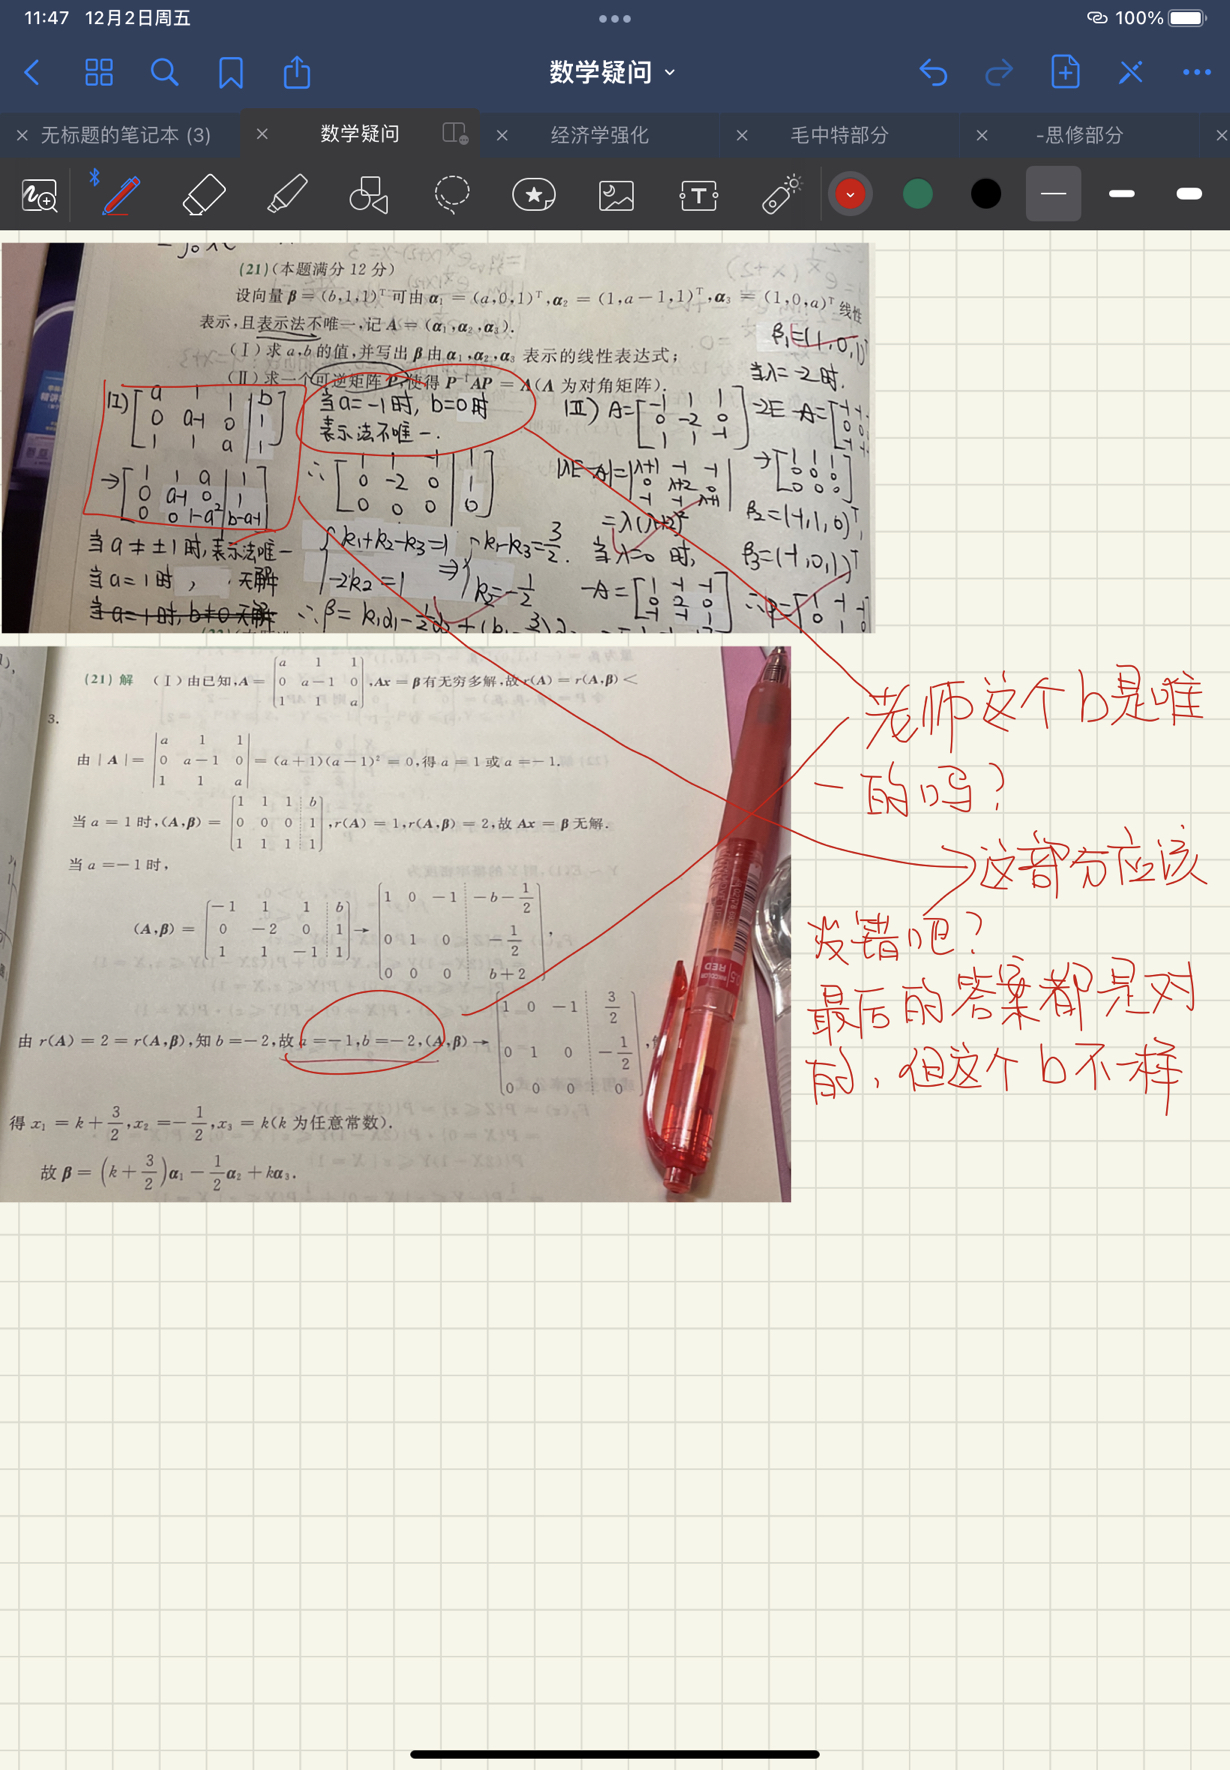 11:47 12月2日周五
100%
数学疑问
无标题的笔记本 (3)
数学疑问
经济学强化
毛中特部分
-思修部分
(21)(本题满分 12 分)
设向量 β = (b,1,1)ᵀ 可由 α₁ = (a,0,1)ᵀ,α₂ = (1,a−1,1)ᵀ,α₃ = (1,0,a)ᵀ 线性
表示,且表示法不唯一,记 A = (α₁,α₂,α₃).
(Ⅰ) 求 a,b 的值,并写出 β 由 α₁,α₂,α₃ 表示的线性表达式;
(Ⅱ) 求一个可逆矩阵 P,使得 P⁻¹AP = Λ(Λ 为对角矩阵).
a 1 1 b
0 a-1 0 1
1 1 a 1
→ 1 1 a 1
0 a-1 0 1
0 0 1-a² b-a+1
当 a ≠ ±1 时, 表示法唯一
当 a = 1 时, 无解
当a=-1时, b=0时
表示法不唯一.
∴
0 -2 0 1
0 0 0 0
k₁+k₂-k₃=1
-2k₂=1
⇒ k₁-k₃=3/2
k₂=-1/2
(Ⅱ) A= -1 1 1
0 -2 0
1 1 -1
|λE-A|= λ+1 -1 -1
0 λ+2 0
-1 -1 λ+1
=λ(λ+2)²
当 λ=0 时,
-A= 1 -1 -1
0 2 0
-1 -1 1
β₁=(1,0,1)ᵀ
当λ=-2时.
-2E-A=
→ 1 1 1
0 0 0
0 0 0
β₂=(-1,1,0)ᵀ
β₃=(-1,0,1)ᵀ
3.
(21) 解 (Ⅰ) 由已知,A = a 1 1 0 a−1 0 1 1 a ,Ax = β 有无穷多解,故 r(A) = r(A,β) <
由 | A | = a 1 1 0 a−1 0 1 1 a = (a+1)(a−1)² = 0,得 a = 1 或 a = −1.
当 a = 1 时,(A,β) = 1 1 1 b 0 0 0 1 1 1 1 1 ,r(A) = 1,r(A,β) = 2,故 Ax = β 无解.
当 a = −1 时,
(A,β) = −1 1 1 b 0 −2 0 1 1 1 −1 1 → 1 0 −1 −b−1/2 0 1 0 −1/2 0 0 0 b+2 ,
由 r(A) = 2 = r(A,β),知 b = −2,故 a = −1,b = −2,(A,β) → 1 0 −1 3/2 0 1 0 −1/2 0 0 0 0 ,
得 x₁ = k + 3/2,x₂ = −1/2,x₃ = k(k 为任意常数).
故 β = (k + 3/2)α₁ − 1/2 α₂ + kα₃.
老师这个b是唯
一的吗?
这部分应该
没错吧?
最后的答案都是对
的, 但这个b不一样
RED